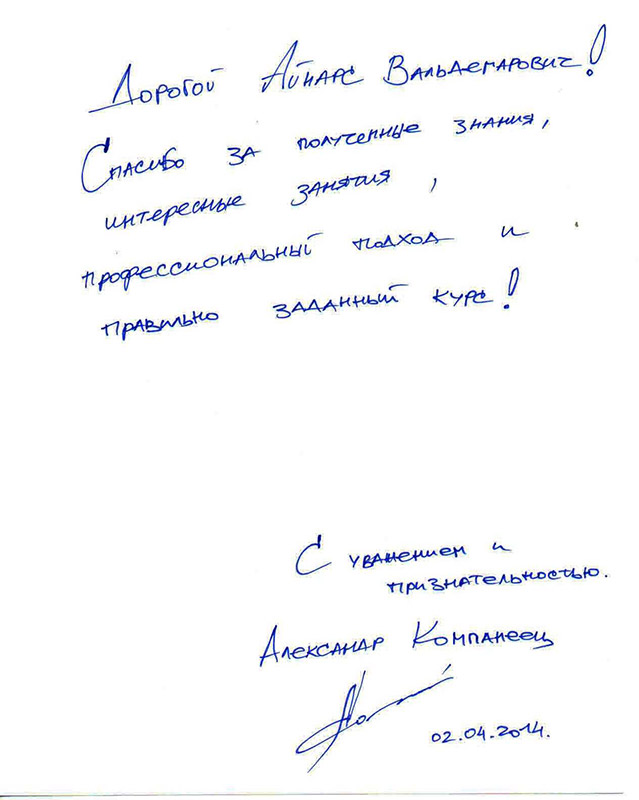 Дорогой Айнарс Вальдемарович!
Спасибо за полученные знания,
интересные занятия,
профессиональный подход и
правильно заданный курс!
С уважением и
признательностью.
Александр Компанеец
02.04.2014.